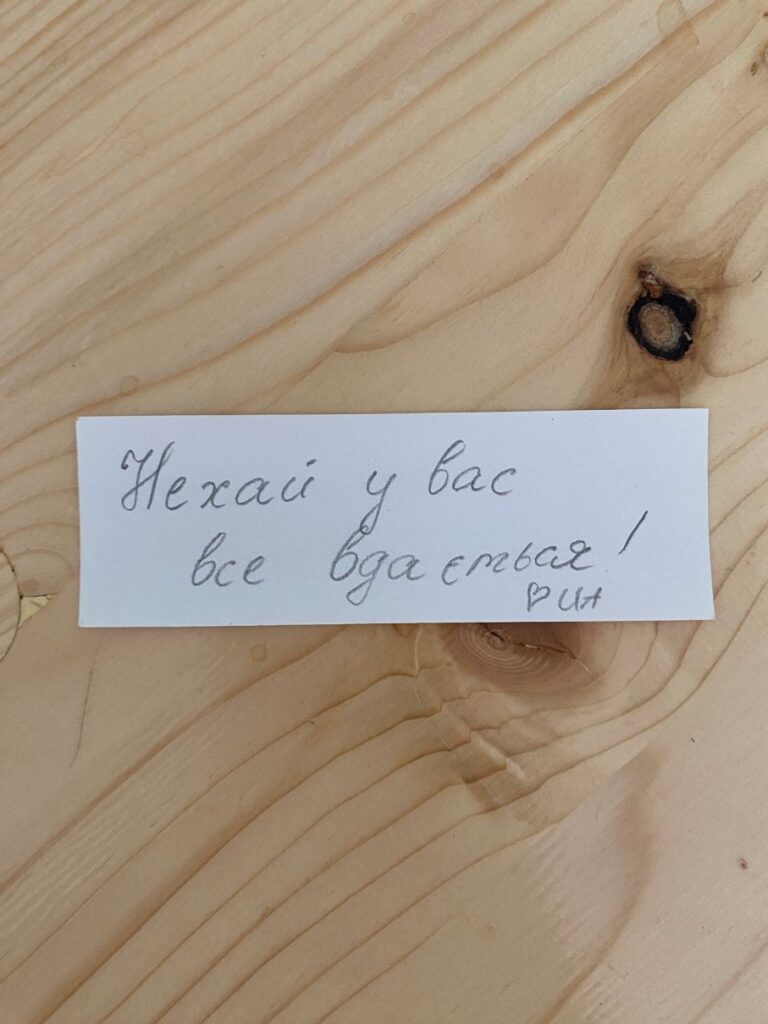 Нехай у вас
все вдасться!